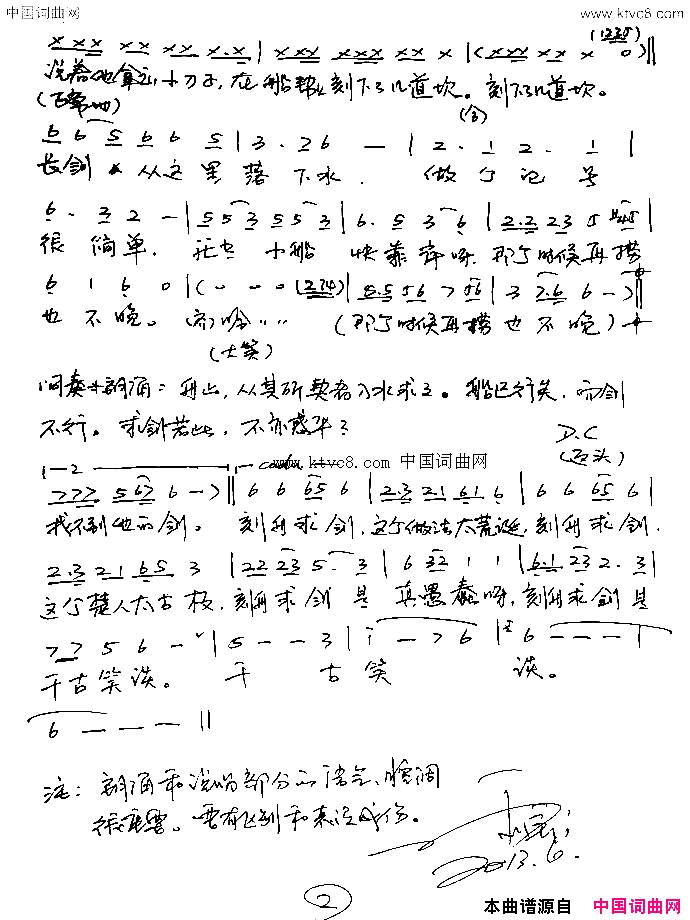 中国词曲网 www.ktvc8.com
x x x x x x x x x . x | x x x x x x x x x | ( x x x x x x 0 ) ||
说着他拿出小刀子，在船帮上刻下了几道坎。刻下了几道坎。
6 6 5 6 6 5 | 3 . 2 6 — | 2 . 1 2 . 1 |
长剑 从这里落下水． 做个记号
6 . 3 2 — | 5 5 3 5 5 3 | 6 . 5 3 6 | 2 . 2 2 3
很简单． 小船快靠岸呀．那个时候再捞
6 1 6 0 | ( — — 0
也不晚。 （那个时候再捞也不晚）
（大笑）
间奏+朗诵：舟止，从其所契者入水求之。船已行矣，而剑
不行。求剑若此，不亦惑乎？
D.C
1-2
coda
www.ktvc8.com 中国词曲网
7 7 7 5 6 7 6 — > || 6 6 6 5 6 | 2 . 3 2 1 6 1 6 | 6 6 6 5 6 |
我不到他的剑。 刻舟求剑，这个做法太荒诞，刻舟求剑．
2 . 3 2 1 6 5 3 | 2 2 2 3 5 . 3 | 6 3 2 1 1 | 6 . 1 2 3 2 . 3 |
这个楚人太古板，刻舟求剑是真愚蠢呀，刻舟求剑是
7 7 5 6 — | 5 — — 3 | i — 7 6 | 6 — — — |
千古笑谈。 千古笑谈。
6 — — — ||
注：朗诵和说唱部分的语气、腔调
很重要。要有区别和表演成份。
2013.6.
2
本曲谱源自 中国词曲网